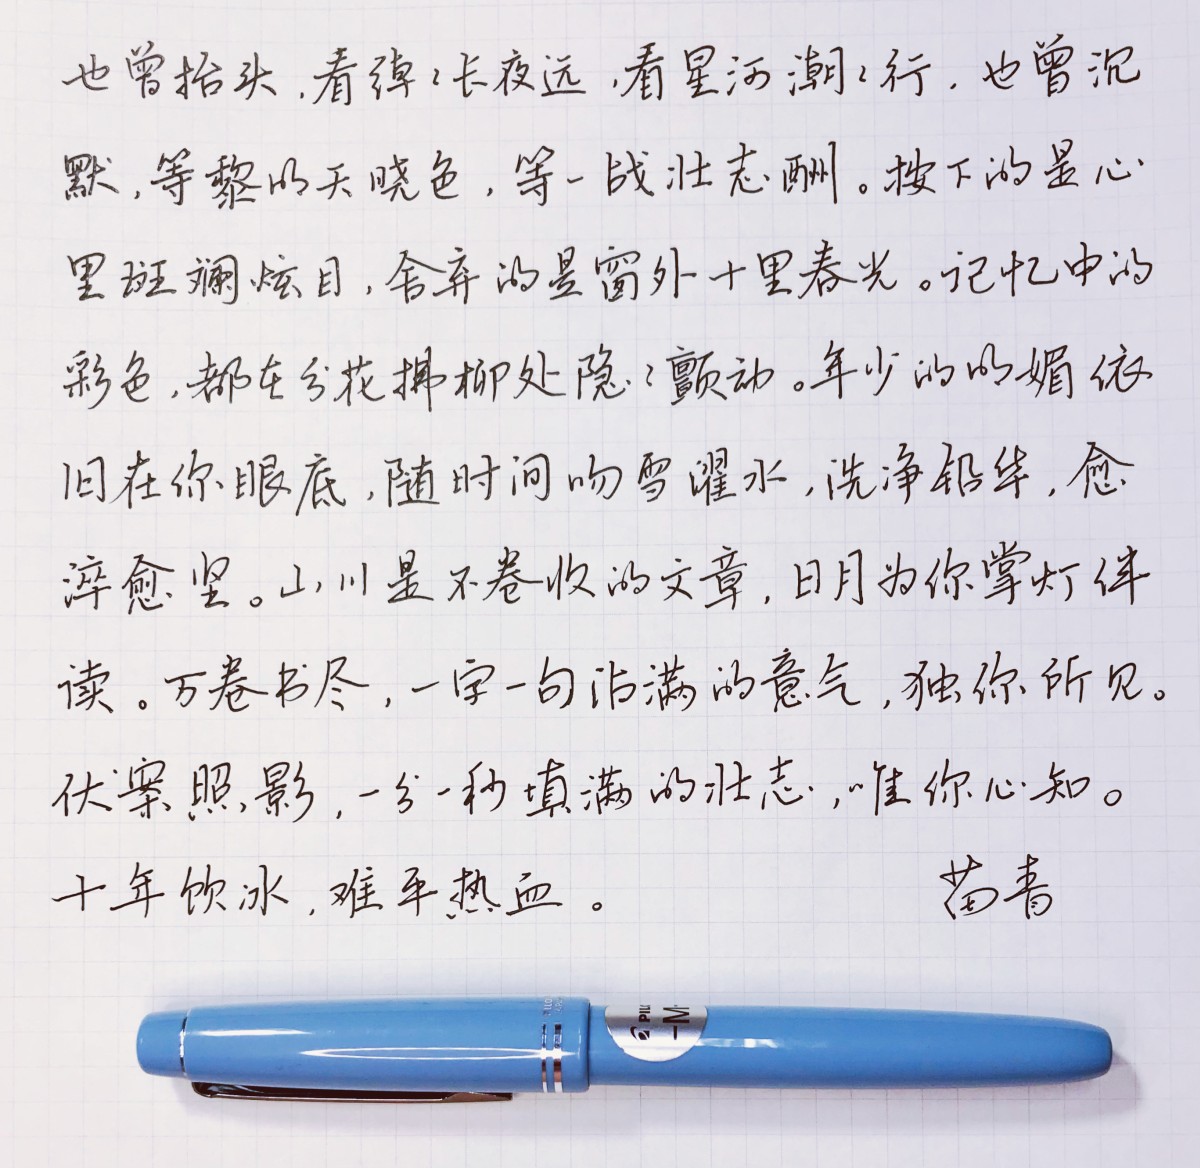 也曾抬头，看绰々长夜远，看星河潮々行，也曾沉
默，等黎明天晓色，等一战壮志酬。按下的是心
里斑斓炫目，舍弃的是窗外十里春光。记忆中的
彩色，都在分花拂柳处隐々颤动。年少的明媚依
旧在你眼底，随时间吻雪濯水，洗净铅华，愈
淬愈坚。山川是不卷收的文章，日月为你掌灯伴
读。万卷书尽，一字一句沾满的意气，独你所见。
伏案照影，一分一秒填满的壮志，唯你心知。
十年饮冰，难平热血。 苗青
PILO
-M-